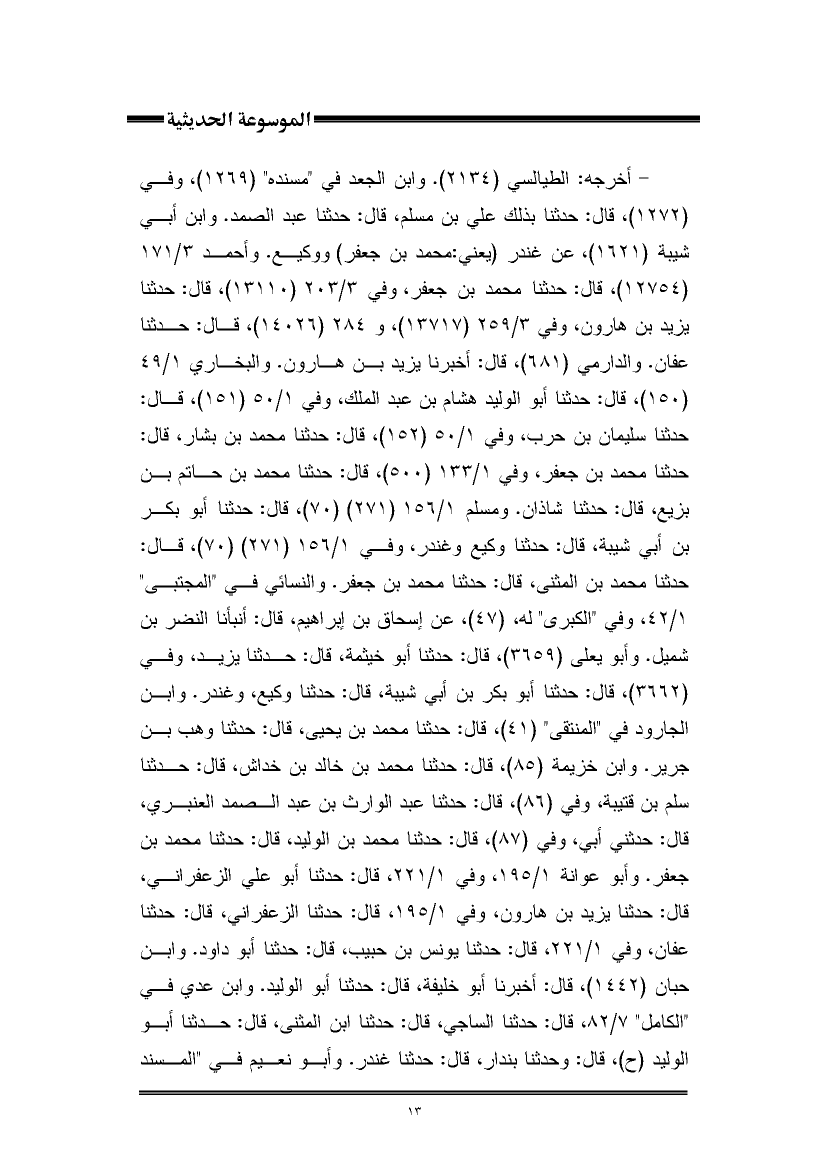 الموسوعة الحديثية
- أخرجه: الطيالسي (٢١٣٤). وابن الجعد في "مسنده" (١٢٦٩)، وفي
(١٢٧٢)، قال: حدثنا بذلك علي بن مسلم، قال: حدثنا عبد الصمد. وابن أبي
شيبة (١٦٢١)، عن غندر (يعني:محمد بن جعفر) ووكيع. وأحمد ١٧١/٣
(١٢٧٥٤)، قال: حدثنا محمد بن جعفر، وفي ٢٠٣/٣ (١٣١١٠)، قال: حدثنا
يزيد بن هارون، وفي ٢٥٩/٣ (١٣٧١٧)، و ٢٨٤ (١٤٠٢٦)، قال: حدثنا
عفان. والدارمي (٦٨١)، قال: أخبرنا يزيد بن هارون. والبخاري ٤٩/١
(١٥٠)، قال: حدثنا أبو الوليد هشام بن عبد الملك، وفي ٥٠/١ (١٥١)، قال:
حدثنا سليمان بن حرب، وفي ٥٠/١ (١٥٢)، قال: حدثنا محمد بن بشار، قال:
حدثنا محمد بن جعفر، وفي ١٣٣/١ (٥٠٠)، قال: حدثنا محمد بن حاتم بن
بزيع، قال: حدثنا شاذان. ومسلم ١٥٦/١ (٢٧١) (٧٠)، قال: حدثنا أبو بكر
بن أبي شيبة، قال: حدثنا وكيع وغندر، وفي ١٥٦/١ (٢٧١) (٧٠)، قال:
حدثنا محمد بن المثنى، قال: حدثنا محمد بن جعفر. والنسائي في "المجتبى"
٤٢/١، وفي "الكبرى" له، (٤٧)، عن إسحاق بن إبراهيم، قال: أنبأنا النضر بن
شميل. وأبو يعلى (٣٦٥٩)، قال: حدثنا أبو خيثمة، قال: حدثنا يزيد، وفي
(٣٦٦٢)، قال: حدثنا أبو بكر بن أبي شيبة، قال: حدثنا وكيع، وغندر. وابن
الجارود في "المنتقى" (٤١)، قال: حدثنا محمد بن يحيى، قال: حدثنا وهب بن
جرير. وابن خزيمة (٨٥)، قال: حدثنا محمد بن خالد بن خداش، قال: حدثنا
سلم بن قتيبة، وفي (٨٦)، قال: حدثنا عبد الوارث بن عبد الصمد العنبري،
قال: حدثني أبي، وفي (٨٧)، قال: حدثنا محمد بن الوليد، قال: حدثنا محمد بن
جعفر. وأبو عوانة ١٩٥/١، وفي ٢٢١/١، قال: حدثنا أبو علي الزعفراني،
قال: حدثنا يزيد بن هارون، وفي ١٩٥/١، قال: حدثنا الزعفراني، قال: حدثنا
عفان، وفي ٢٢١/١، قال: حدثنا يونس بن حبيب، قال: حدثنا أبو داود. وابن
حبان (١٤٤٢)، قال: أخبرنا أبو خليفة، قال: حدثنا أبو الوليد. وابن عدي في
"الكامل" ٨٢/٧، قال: حدثنا الساجي، قال: حدثنا ابن المثنى، قال: حدثنا أبو
الوليد (ح)، قال: وحدثنا بندار، قال: حدثنا غندر. وأبو نعيم في "المسند
١٣